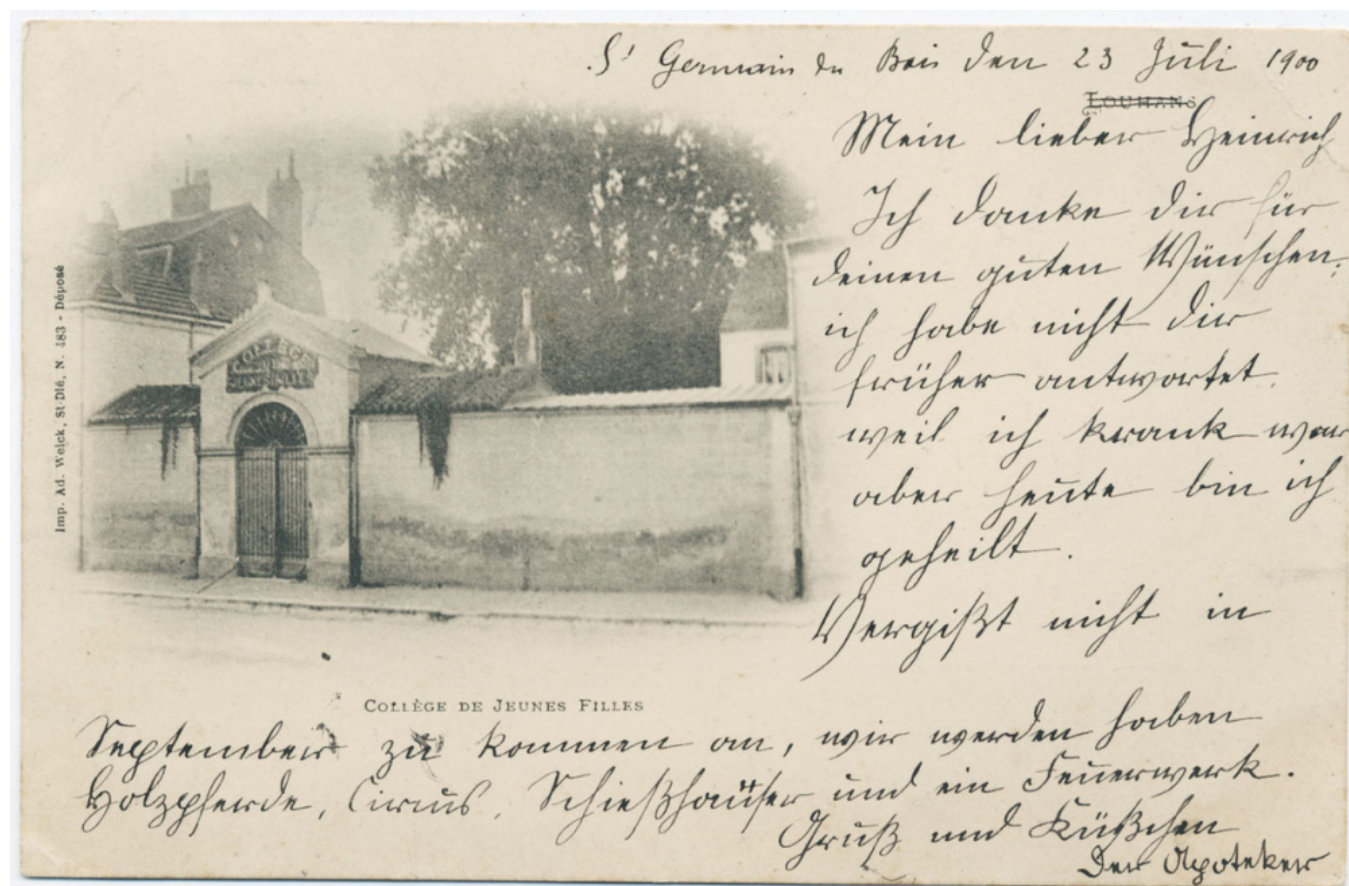 St Germain du Bois den 23 Juli 1900
LOUHANS
Mein lieber Heinrich
Ich danke dir für
deinen guten Wünschen,
ich habe nicht dir
früher antwortet
weil ich krank war
aber heute bin ich
geheilt.
Vergißt nicht in
September zu kommen an, wir werden haben
Holzpferde, Circus, Schießhäuser und ein Feuerwerk.
Gruß und Küßchen
Der Apoteker
COLLÈGE DE JEUNES FILLES
Imp. Ad. Weick, St Dié, N. 483 - Déposé
COLLÈGE